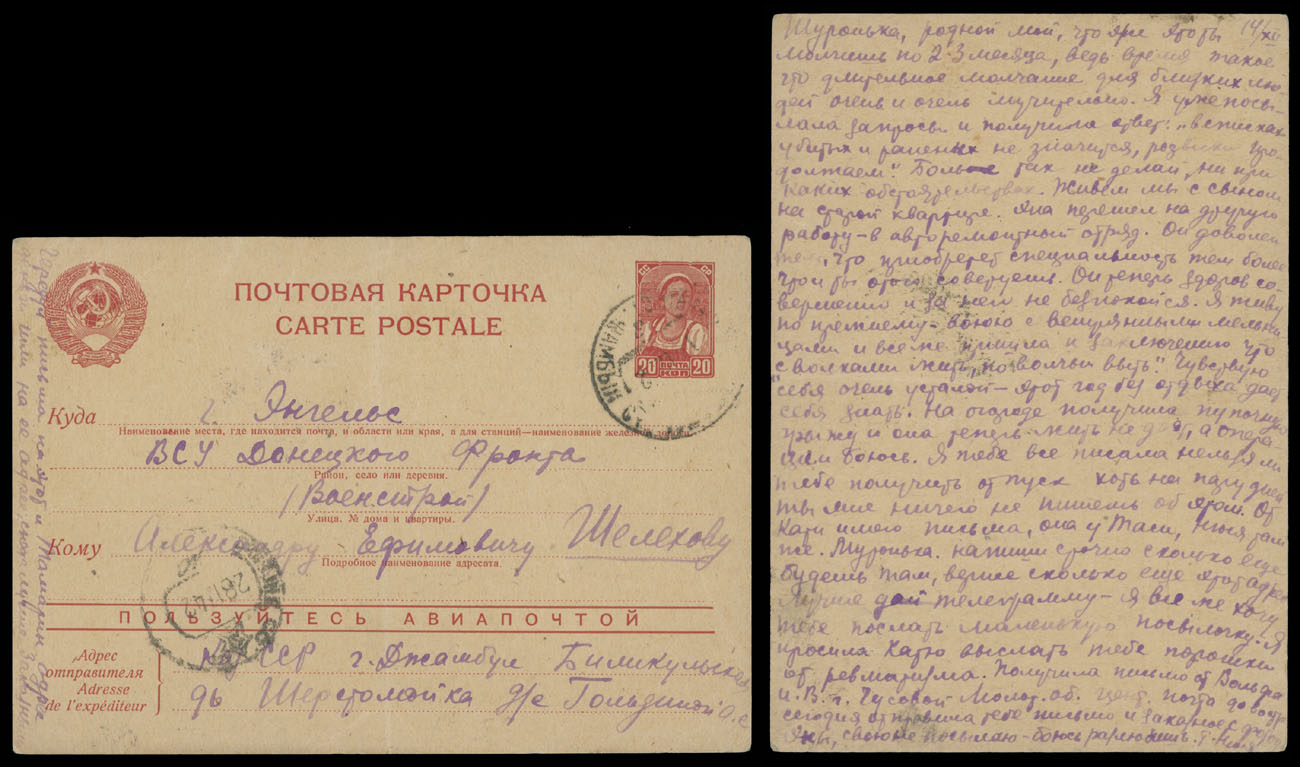 ПОЧТОВАЯ КАРТОЧКА
CARTE POSTALE
СС СР
20 ПОЧТА КОП 20
ДЖАМБУЛ
Куда г. Энгельс
Наименование места, где находится почта, и области или края, а для станций—наименование железной
ВСУ Донецкого Фронта
Район, село или деревня.
(Военстрой)
Улица, № дома и квартиры.
Кому Александру Ефимовичу Шелехову
Подробное наименование адресата.
ПОЛЬЗУЙТЕСЬ АВИАПОЧТОЙ
Адрес
отправителя
Adresse
de l'expéditeur
ССР г. Джамбул Биликульская
дь Шерстомойка д/е Гольдиной О.С
письма на этот и Тамарин адрес
или на ее адрес
Шуронька, родной мой, что же это ты 14/XII
молчишь по 2-3 месяца, ведь время такое
что длительное молчание для близких лю-
дей очень и очень мучительно. Я уже посы-
лала запросы и получила ответ: „в списках
убитых и раненых не значится, розыски про-
должаем". Больше так не делай, ни при
каких обстоятельствах. Живем мы с сыном
на старой квартире. Яна перешел на другую
работу - в авторемонтный отряд. Он доволен
тем, что приобретет специальность тем более
что и ты этого советуешь. Он теперь здоров со-
вершенно и за него не безпокойся. Я живу
по прежнему - воюю с ветрянными мельни
цами и все не пришла к заключению что
"с волками жить по волчьи выть". Чувствую
себя очень усталой - этот год без отдыха дает
себя знать. На огороде получила пупочную
грыжу и она теперь жить не дает, а опера
ции боюсь. Я тебе все писала нельзя ли
тебе получить отпуск хоть на пару дней
ты мне ничего не пишешь об этом. От
Кати имею письма, она у Таси, Нюся там
же. Шуронька напиши срочно сколько еще
будешь там, вернее сколько еще этот адрес
Лучше дай телеграмму - я все же хочу
тебе послать маленькую посылочку. Я
просила Катю выслать тебе порошки
от ревматизма. Получила письмо от Вольфа
и В. г. Чусовой Молот. об. цент. почта до востр
сегодня отправила тебе письмо и заказное с фото
Яны, свою не посылаю - боюсь разлюбишь.